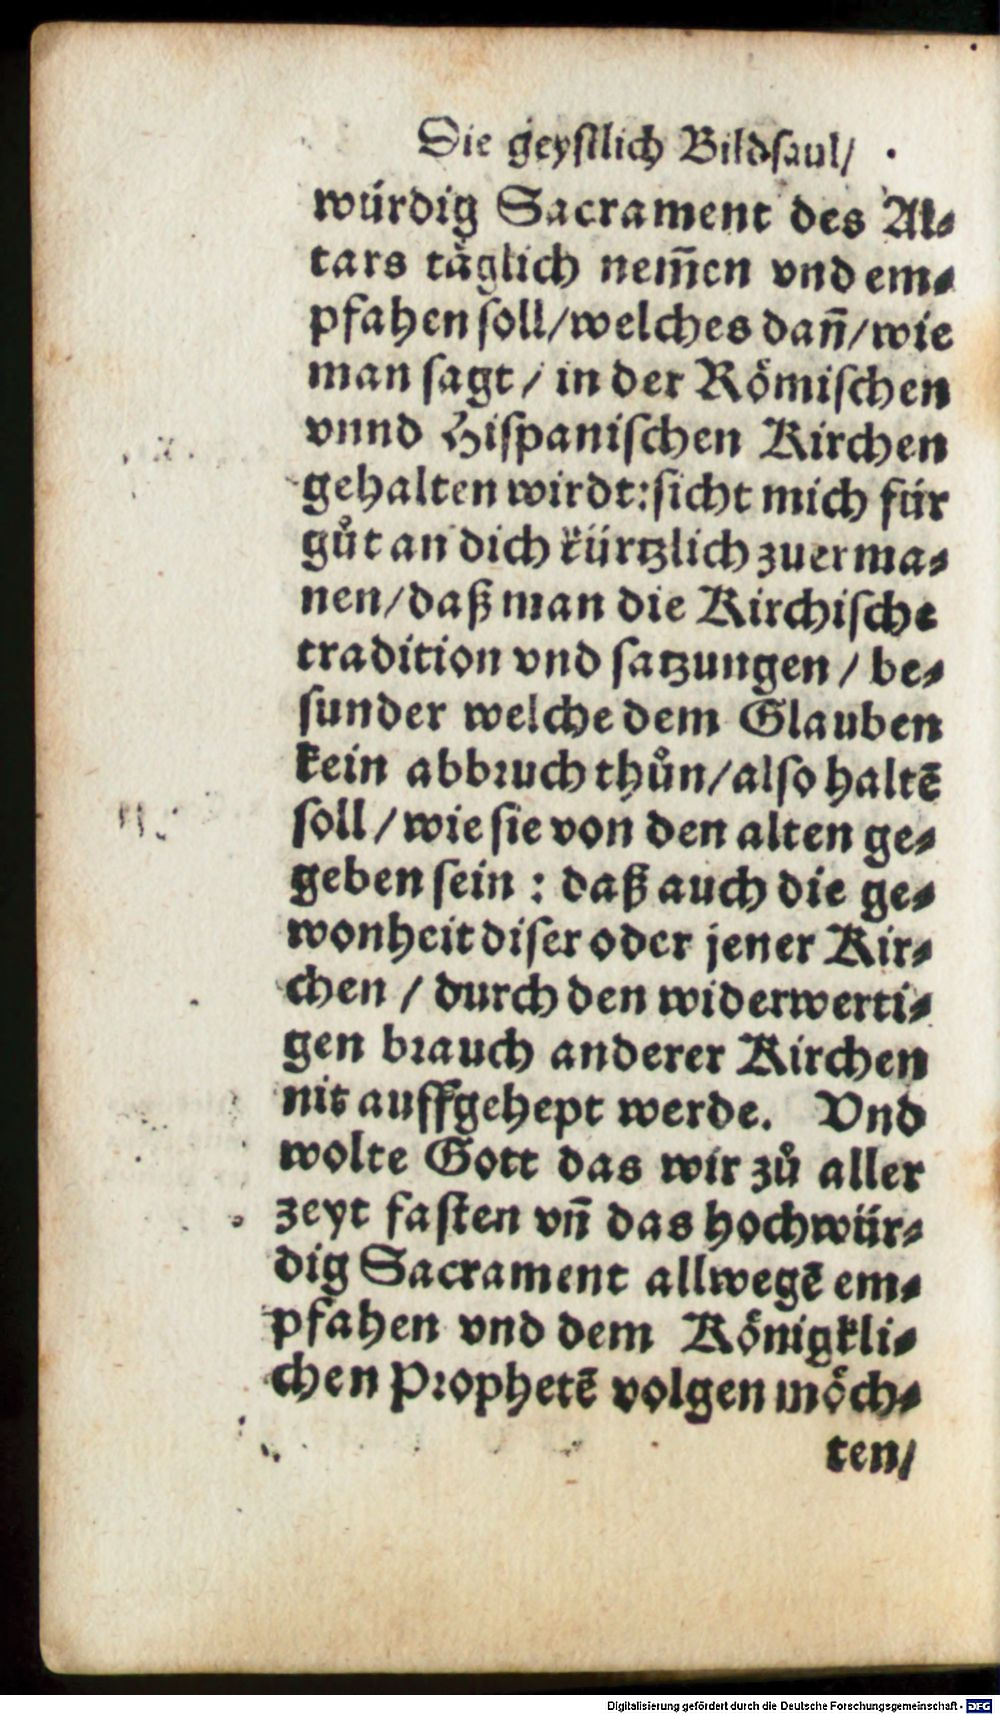 Die geystlich Bildsaul/
würdig Sacrament des Al-
tars täglich nem̃en vnd em-
pfahen soll/welches dañ/wie
man sagt / in der Römischen
vnnd Hispanischen Kirchen
gehalten wirdt:sicht mich für
gůt an dich kürtzlich zuerma-
nen/daß man die Kirchische
tradition vnd satzungen / be-
sunder welche dem Glauben
kein abbruch thůn/also haltẽ
soll/wie sie von den alten ge-
geben sein : daß auch die ge-
wonheit diser oder jener Kir-
chen / durch den widerwerti-
gen brauch anderer Kirchen
nit auffgehept werde. Vnd
wolte Gott das wir zů aller
zeyt fasten vñ das hochwür-
dig Sacrament allwegẽ em-
pfahen vnd dem Königkli-
chen Prophetẽ volgen möch-
ten/
Digitalisierung gefördert durch die Deutsche Forschungsgemeinschaft - DFG